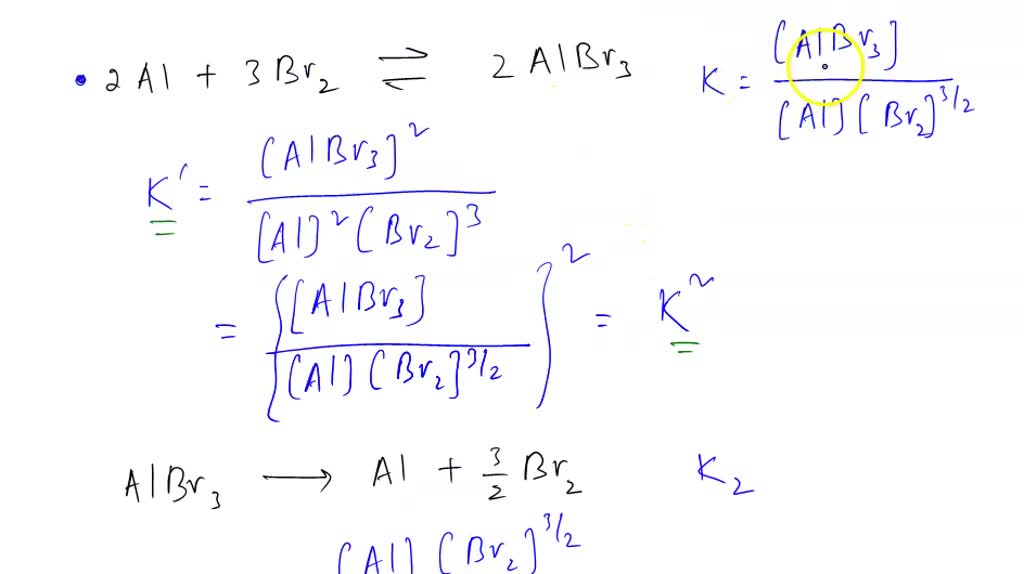 • 2 Al + 3 Br₂ ⇌ 2 AlBr₃ K = [AlBr₃] / [Al][Br₂]^3/2
K' = [AlBr₃]² / [Al]²[Br₂]³
= {[AlBr₃] / [Al][Br₂]^3/2}² = K²
AlBr₃ ⟶ Al + 3/2 Br₂ K₂
[Al][Br₂]^3/2